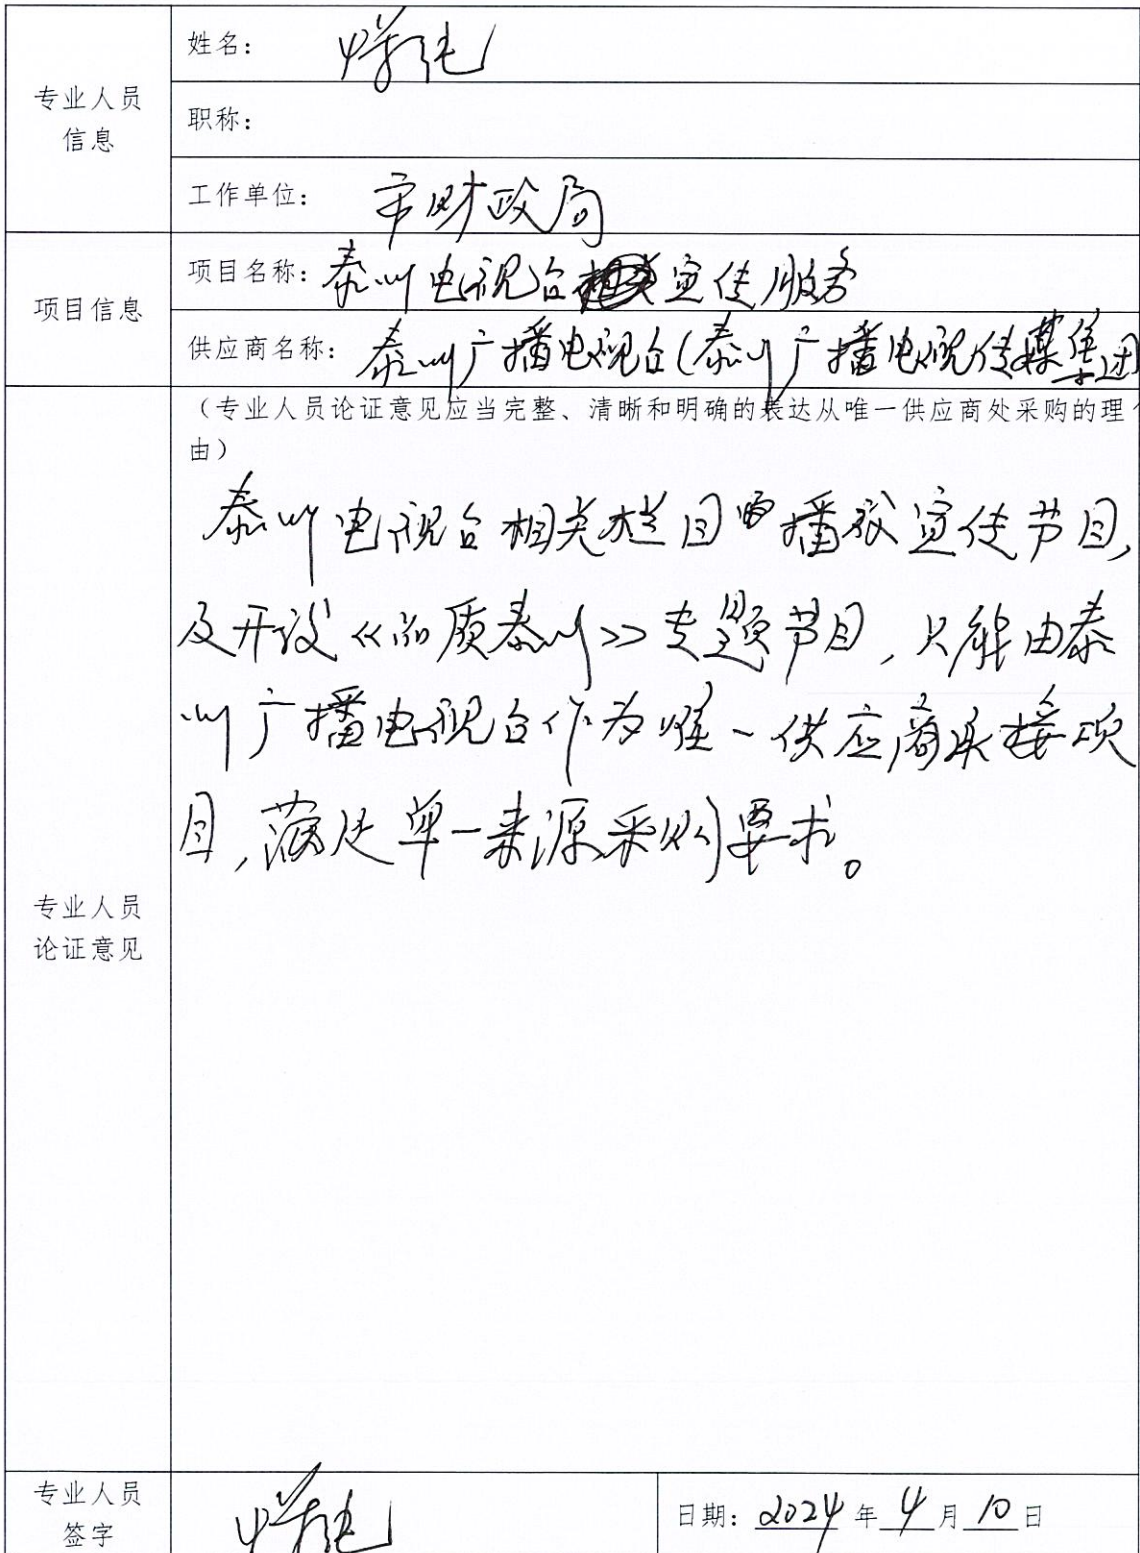 专业人员
信息
姓名：
职称：
工作单位：市财政局
项目信息
项目名称：泰州电视台宣传服务
供应商名称：泰州广播电视台(泰州广播电视传媒集团
专业人员
论证意见
（专业人员论证意见应当完整、清晰和明确的表达从唯一供应商处采购的理
由）
泰州电视台相关栏目播放宣传节目,
及开设《品质泰州》专题节目,只能由泰
州广播电视台作为唯一供应商承接项
目,满足单一来源采购要求。
专业人员
签字
日期：2024年4月10日